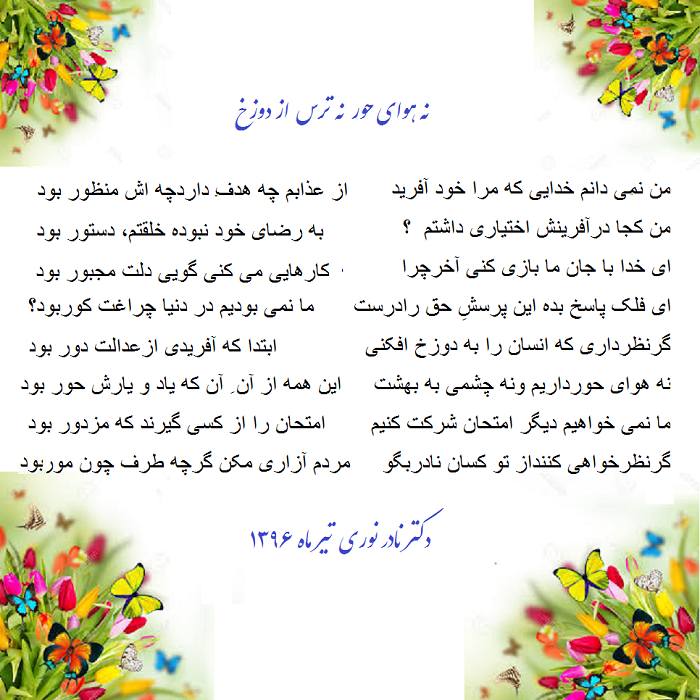 نه هوای حور نه ترس از دوزخ
من نمی دانم خدایی که مرا خود آفرید از عذابم چه هدفِ داردچه اش منظور بود
من کجا درآفرینش اختیاری داشتم ؟ به رضای خود نبوده خلقتم، دستور بود
ای خدا با جان ما بازی کنی آخرچرا کارهایی می کنی گویی دلت مجبور بود
ای فلک پاسخ بده این پرسشِ حق رادرست ما نمی بودیم در دنیا چراغت کوربود؟
گرنظرداری که انسان را به دوزخ افکنی ابتدا که آفریدی ازعدالت دور بود
نه هوای حورداریم ونه چشمی به بهشت این همه از آن ِ آن که یاد و یارش حور بود
ما نمی خواهیم دیگر امتحان شرکت کنیم امتحان را از کسی گیرند که مزدور بود
گرنظرخواهی کننداز تو کسان نادربگو مردم آزاری مکن گرچه طرف چون موربود
دکترنادر نوری تیرماه ۱۳۹۶